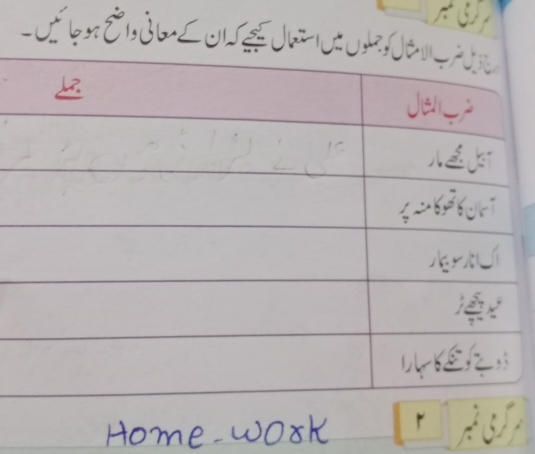 سرگرمی نمبر
ذیل ضرب الامثال کو جملوں میں استعمال کیجیے کہ ان کے معانی واضح ہو جائیں۔
ضرب المثال جملے
آ بیل مجھے مار
آسمان کا تھوکا منہ پر
اک انار سو بیمار
عید پیچھے ٹر
ڈوبتے کو تنکے کا سہارا
سرگرمی نمبر ۲
Home-work